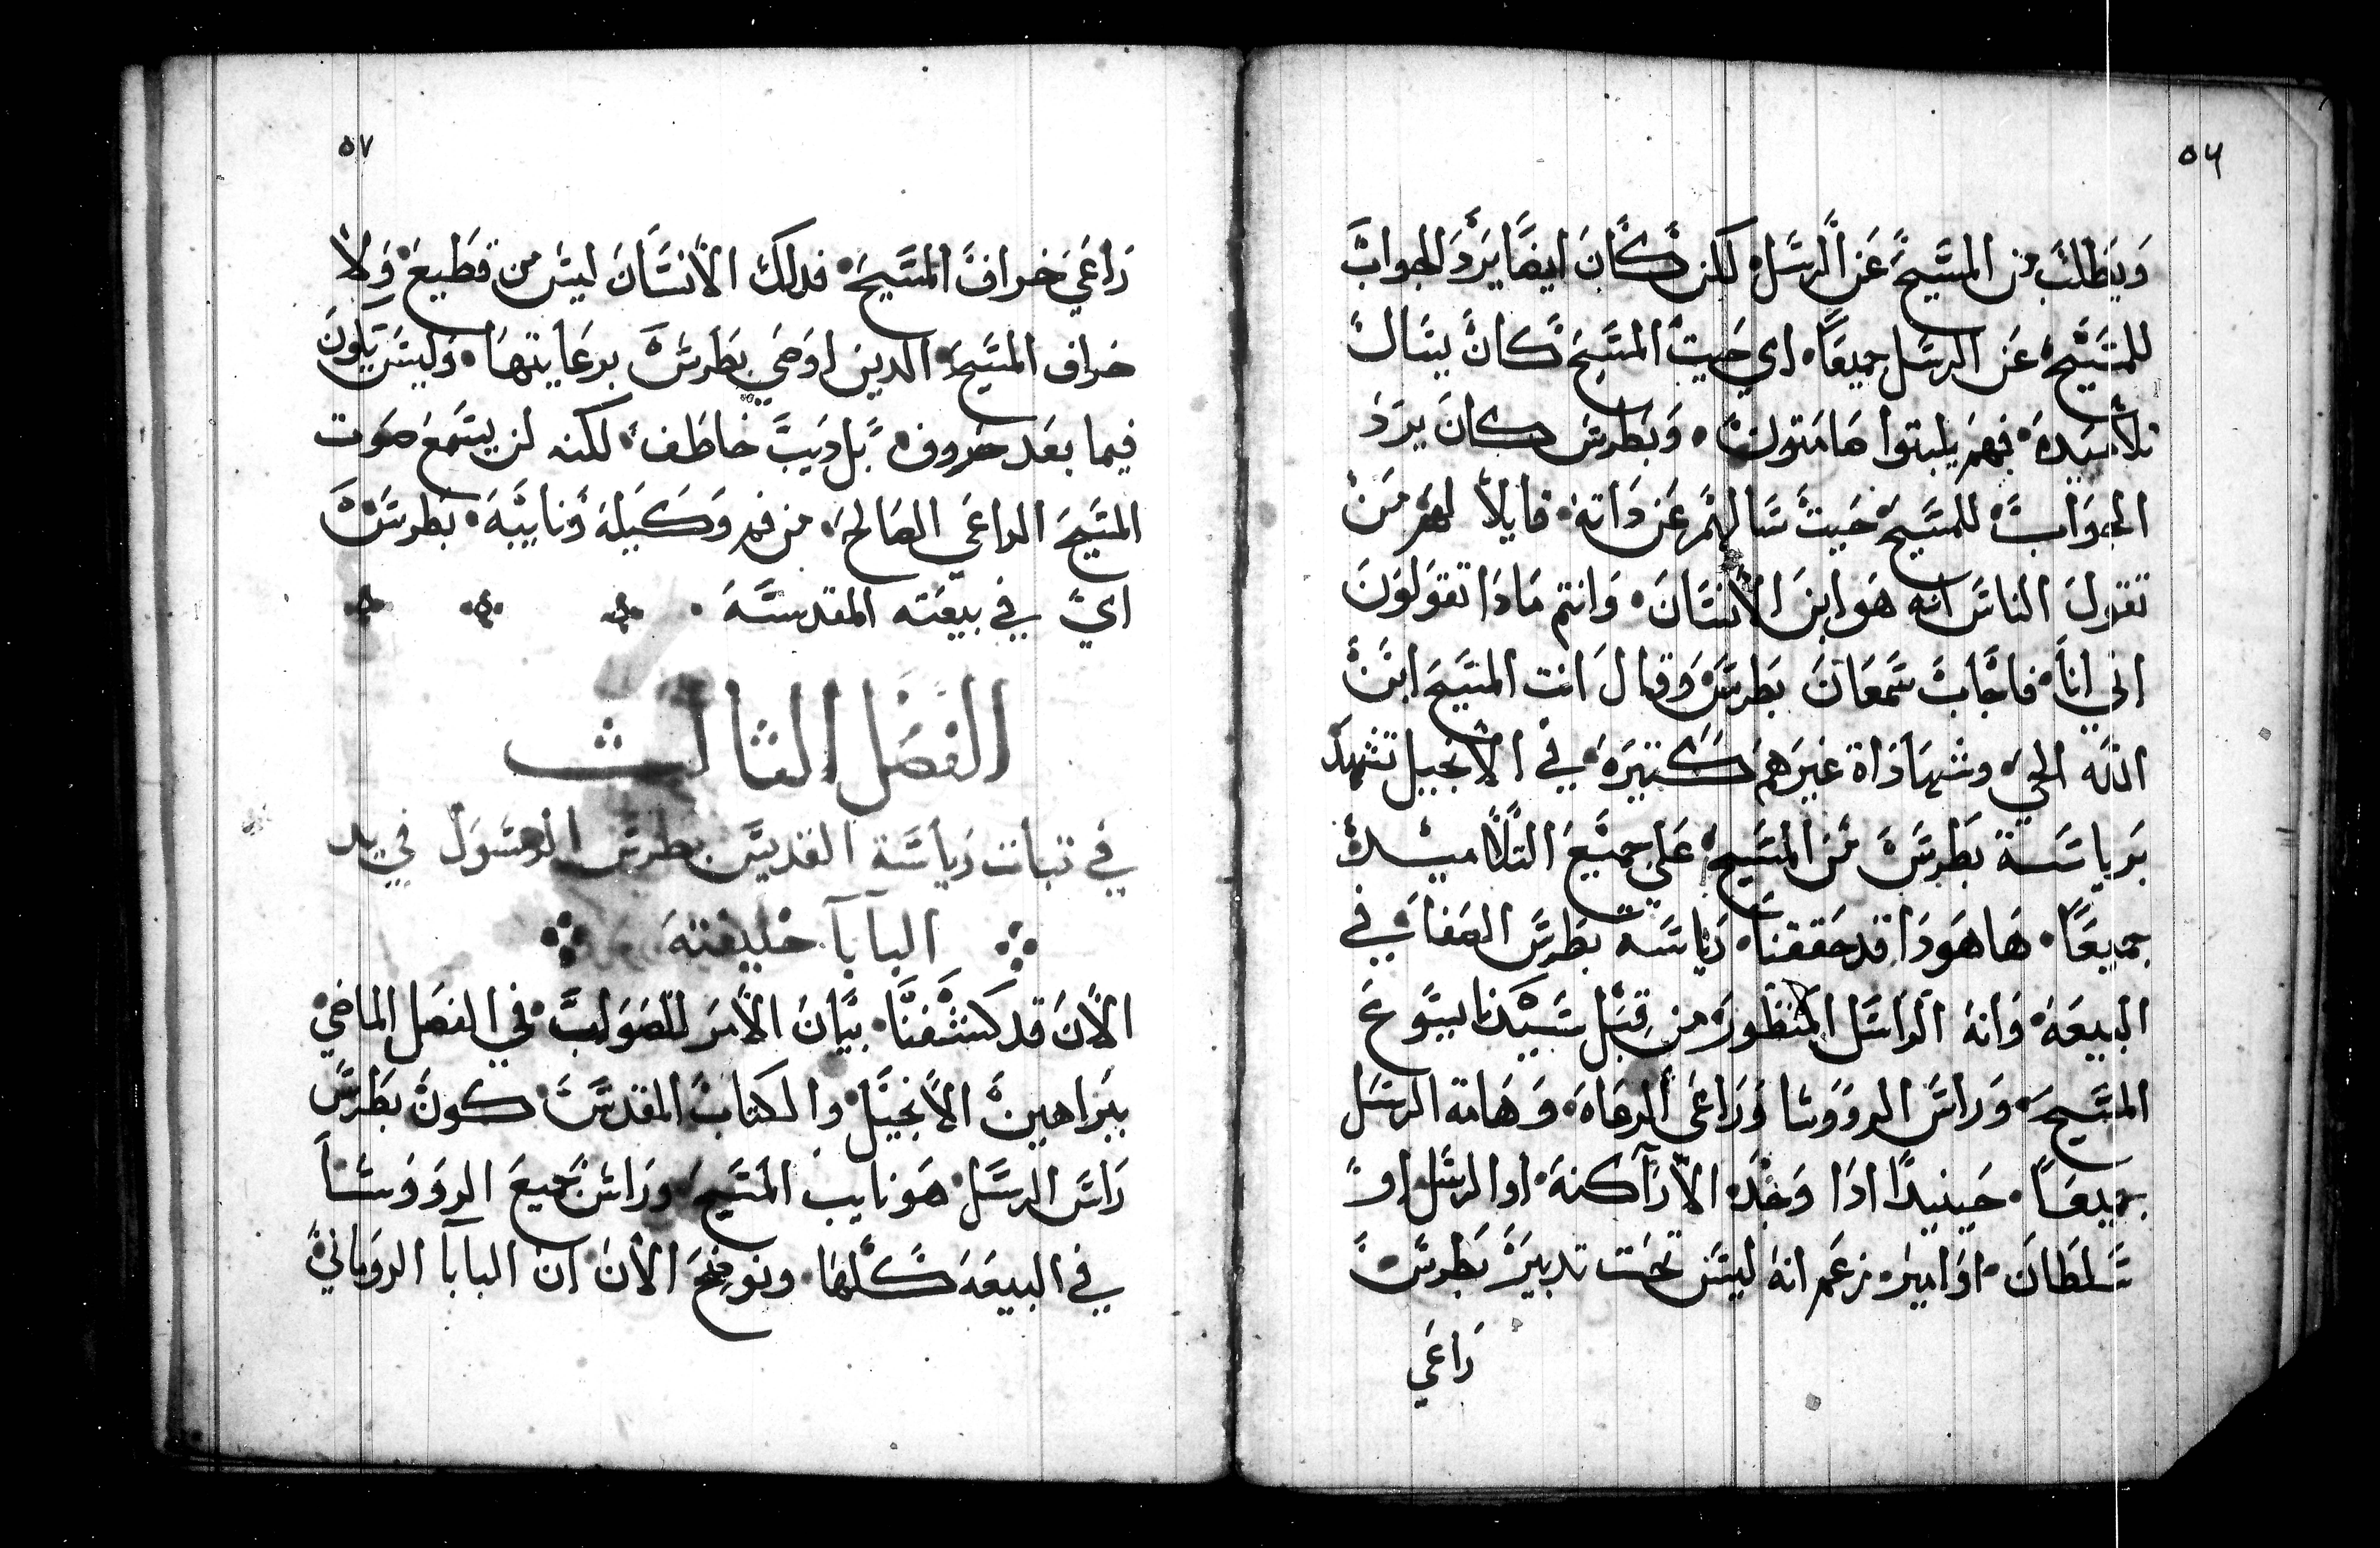 ٥٦
ويطلب من المسيح عن الرسل لكن كان ايضا يرد الجواب
للمسيح عن الرسل جميعا اي حيت المسيح كان يسال
تلاميده فهم يلبتوا هامتون وبطرس كان يرد
الجواب للمسيح حيت سالهم عن داته قايلا لهم من
تقول الناس انه هو ابن الانسان وانتم مادا تقولون
اني انا فاجاب سمعان بطرس وقال انت المسيح ابن
الله الحي وشهاداة غيرهم كتيرة في الانجيل تشهد
برياسة بطرس من المسيح علي جميع التلاميد
جميعا هاهودا قد حققنا رياسة بطرس الصفا في
البيعة وانه الراس المنظور من قبل سيدنا يسوع
المسيح وراس الرووسا وراعي الرعاة وهامة الرسل
جميعا حينيدا ادا وجد الاراكنة او الرسل او
سلطان او امير زعم انه ليس تحت تدبير بطرس
راعي
٥٧
راعي خراف المسيح فدلك الانسان ليس من قطيع ولا
خراف المسيح الدين اوصي بطرس برعايتها وليس يكون
فيما بعد خروف بل ديب خاطف لكنه لن يسمع صوت
المسيح الراعي الصالح من فم وكيله ونايبه بطرس
اي في بيعته المقدسة
الفصل الثالث
في تبات رياسة القديس بطرس الرسول في يد
البابا خليفته
الان قد كشفنا بيان الامر للصواب في الفصل الماضي
ببراهين الانجيل والكتاب المقدس كون بطرس
راس الرسل هو نايب المسيح وراس جميع الرووسا
في البيعة كلها ونوضح الان ان البابا الروماني